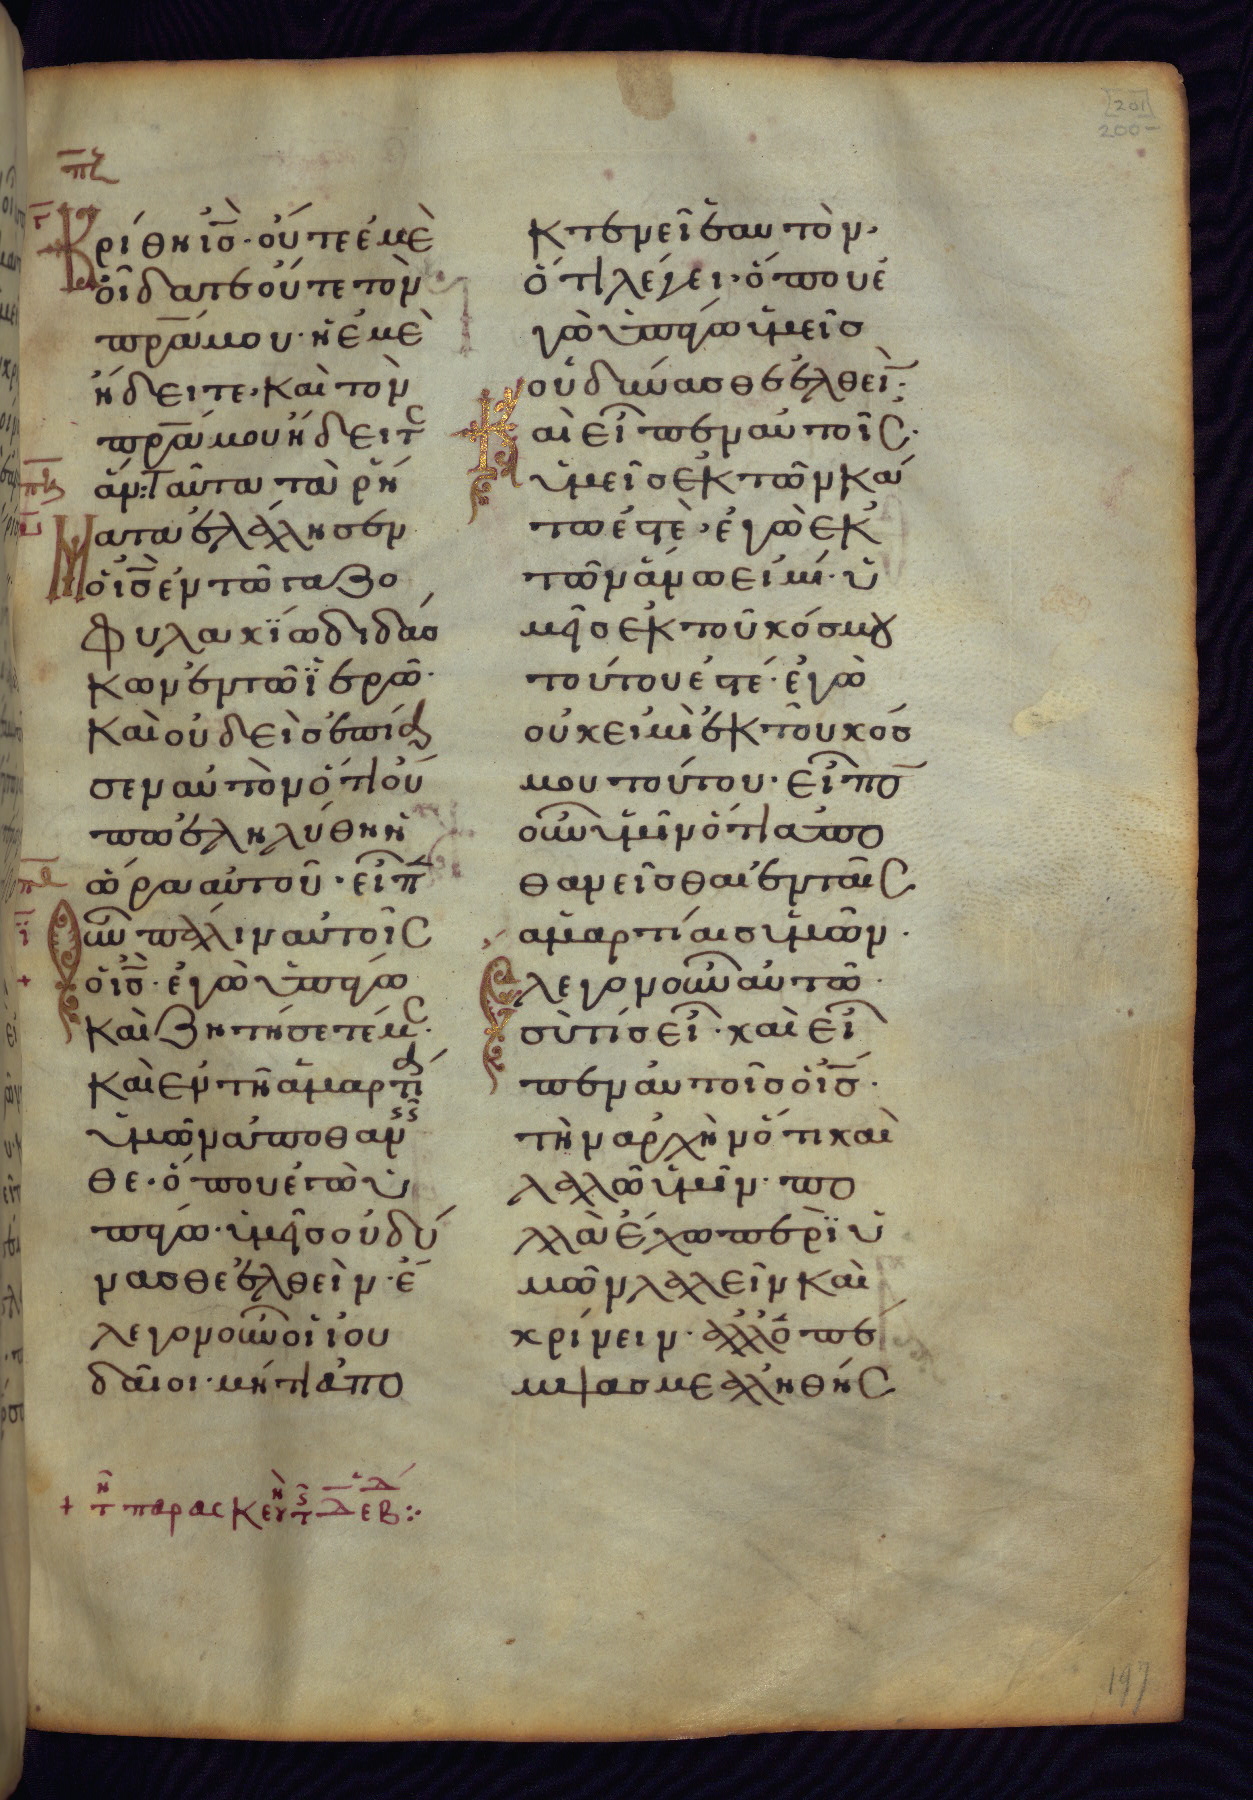 πζ
Κρίθη ἰς̅· οὔτε ἐμὲ
οἴδατε οὔτε τὸν
πρ̅α μου· ἢ ἐμὲ
ἤδειτε· καὶ τὸν
πρ̅α μου ἤδειτε
πη
ἄν: Ταῦτα τὰ ῥή
Ματα ἐλάλησεν
ὁ ἰς̅ ἐν τῶ γαζο
φυλακϊω διδάσ
κων ἐν τῶ ϊερῶ·
καὶ οὐδεὶς ἐπίασ
σεν αὐτὸν ὅτι οὔ
πω ἐληλύθη ἡ
πθ
ὥρα αὐτοῦ· εἶπ̅
Οὖν πάλιν αὐτοῖς
ὁ ἰς̅· ἐγὼ ὑπάγω
καὶ ζητήσετέ με·
καὶ ἐν τῆ ἁμαρτία
ὑμῶν ἀποθανεῖσ
θε· ὅπου ἐγὼ ὑ
πάγω· ὑμεῖς οὐ δύ
νασθε ἐλθεῖν· ἔ
λεγον οὖν οἱ ἰου
δαῖοι· μήτι ἀπο
κτενεῖ ἑαυτὸν·
ὅτι λέγει· ὅπου ἐ
γὼ ὑπάγω ὑμεῖς
οὐ δύνασθε ἐλθεῖν·
Καὶ εἶπεν αὐτοῖς·
ὑμεῖς ἐκ τῶν κά
τω ἐστὲ· ἐγὼ ἐκ
τῶν ἄνω εἰμί· ὑ
μεῖς ἐκ τοῦ κόσμου
τούτου ἐστέ· ἐγὼ
οὐκ εἰμὶ ἐκ τοῦ κόσ
μου τούτου· εἶπο̅
οὖν ὑμῖν ὅτι ἀπο
θανεῖσθαι ἐν ταῖς
αμαρτίαις ὑμῶν·
Ἔλεγον οὖν αὐτῶ·
σὺ τίς εἶ· καὶ εἶ
πεν αὐτοῖς ὁ ἰς̅·
τὴν αρχὴν ὅτι καὶ
λαλῶ ὑμῖν· πο
λλὰ ἔχω περὶ ὑ
μῶν λαλεῖν καὶ
κρίνειν· ἀλλ' ὁ πέ
μψας με ἀληθής
+ τῆ παρασκευῆ τῆς Δ ἑβδ:·
[201]
200
197